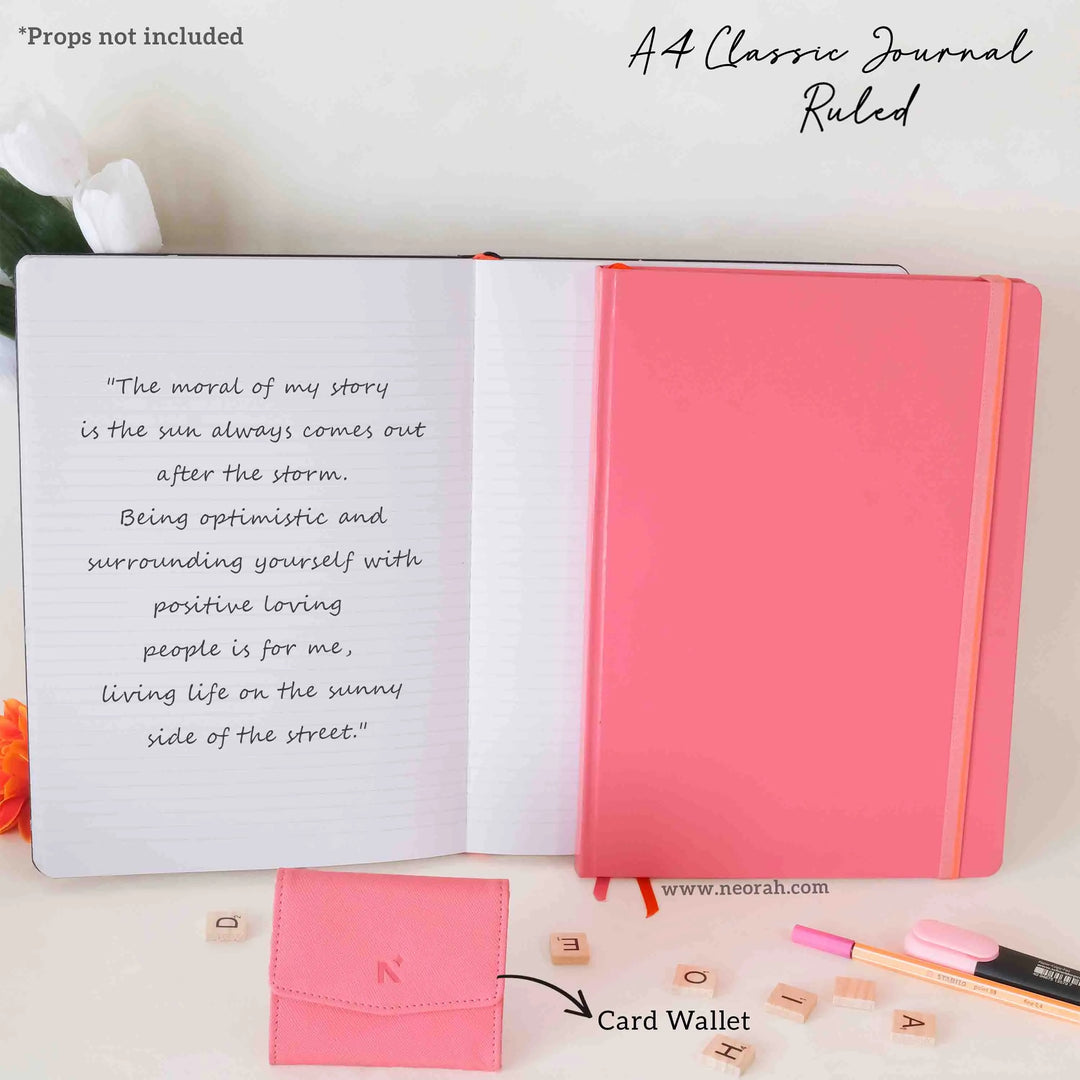 *Props not included
A4 Classic Journal
Ruled
"The moral of my story
is the sun always comes out
after the storm.
Being optimistic and
surrounding yourself with
positive loving
people is for me,
living life on the sunny
side of the street."
www.neorah.com
D
E
N
O
I
A
H
STABILO point 88
Card Wallet